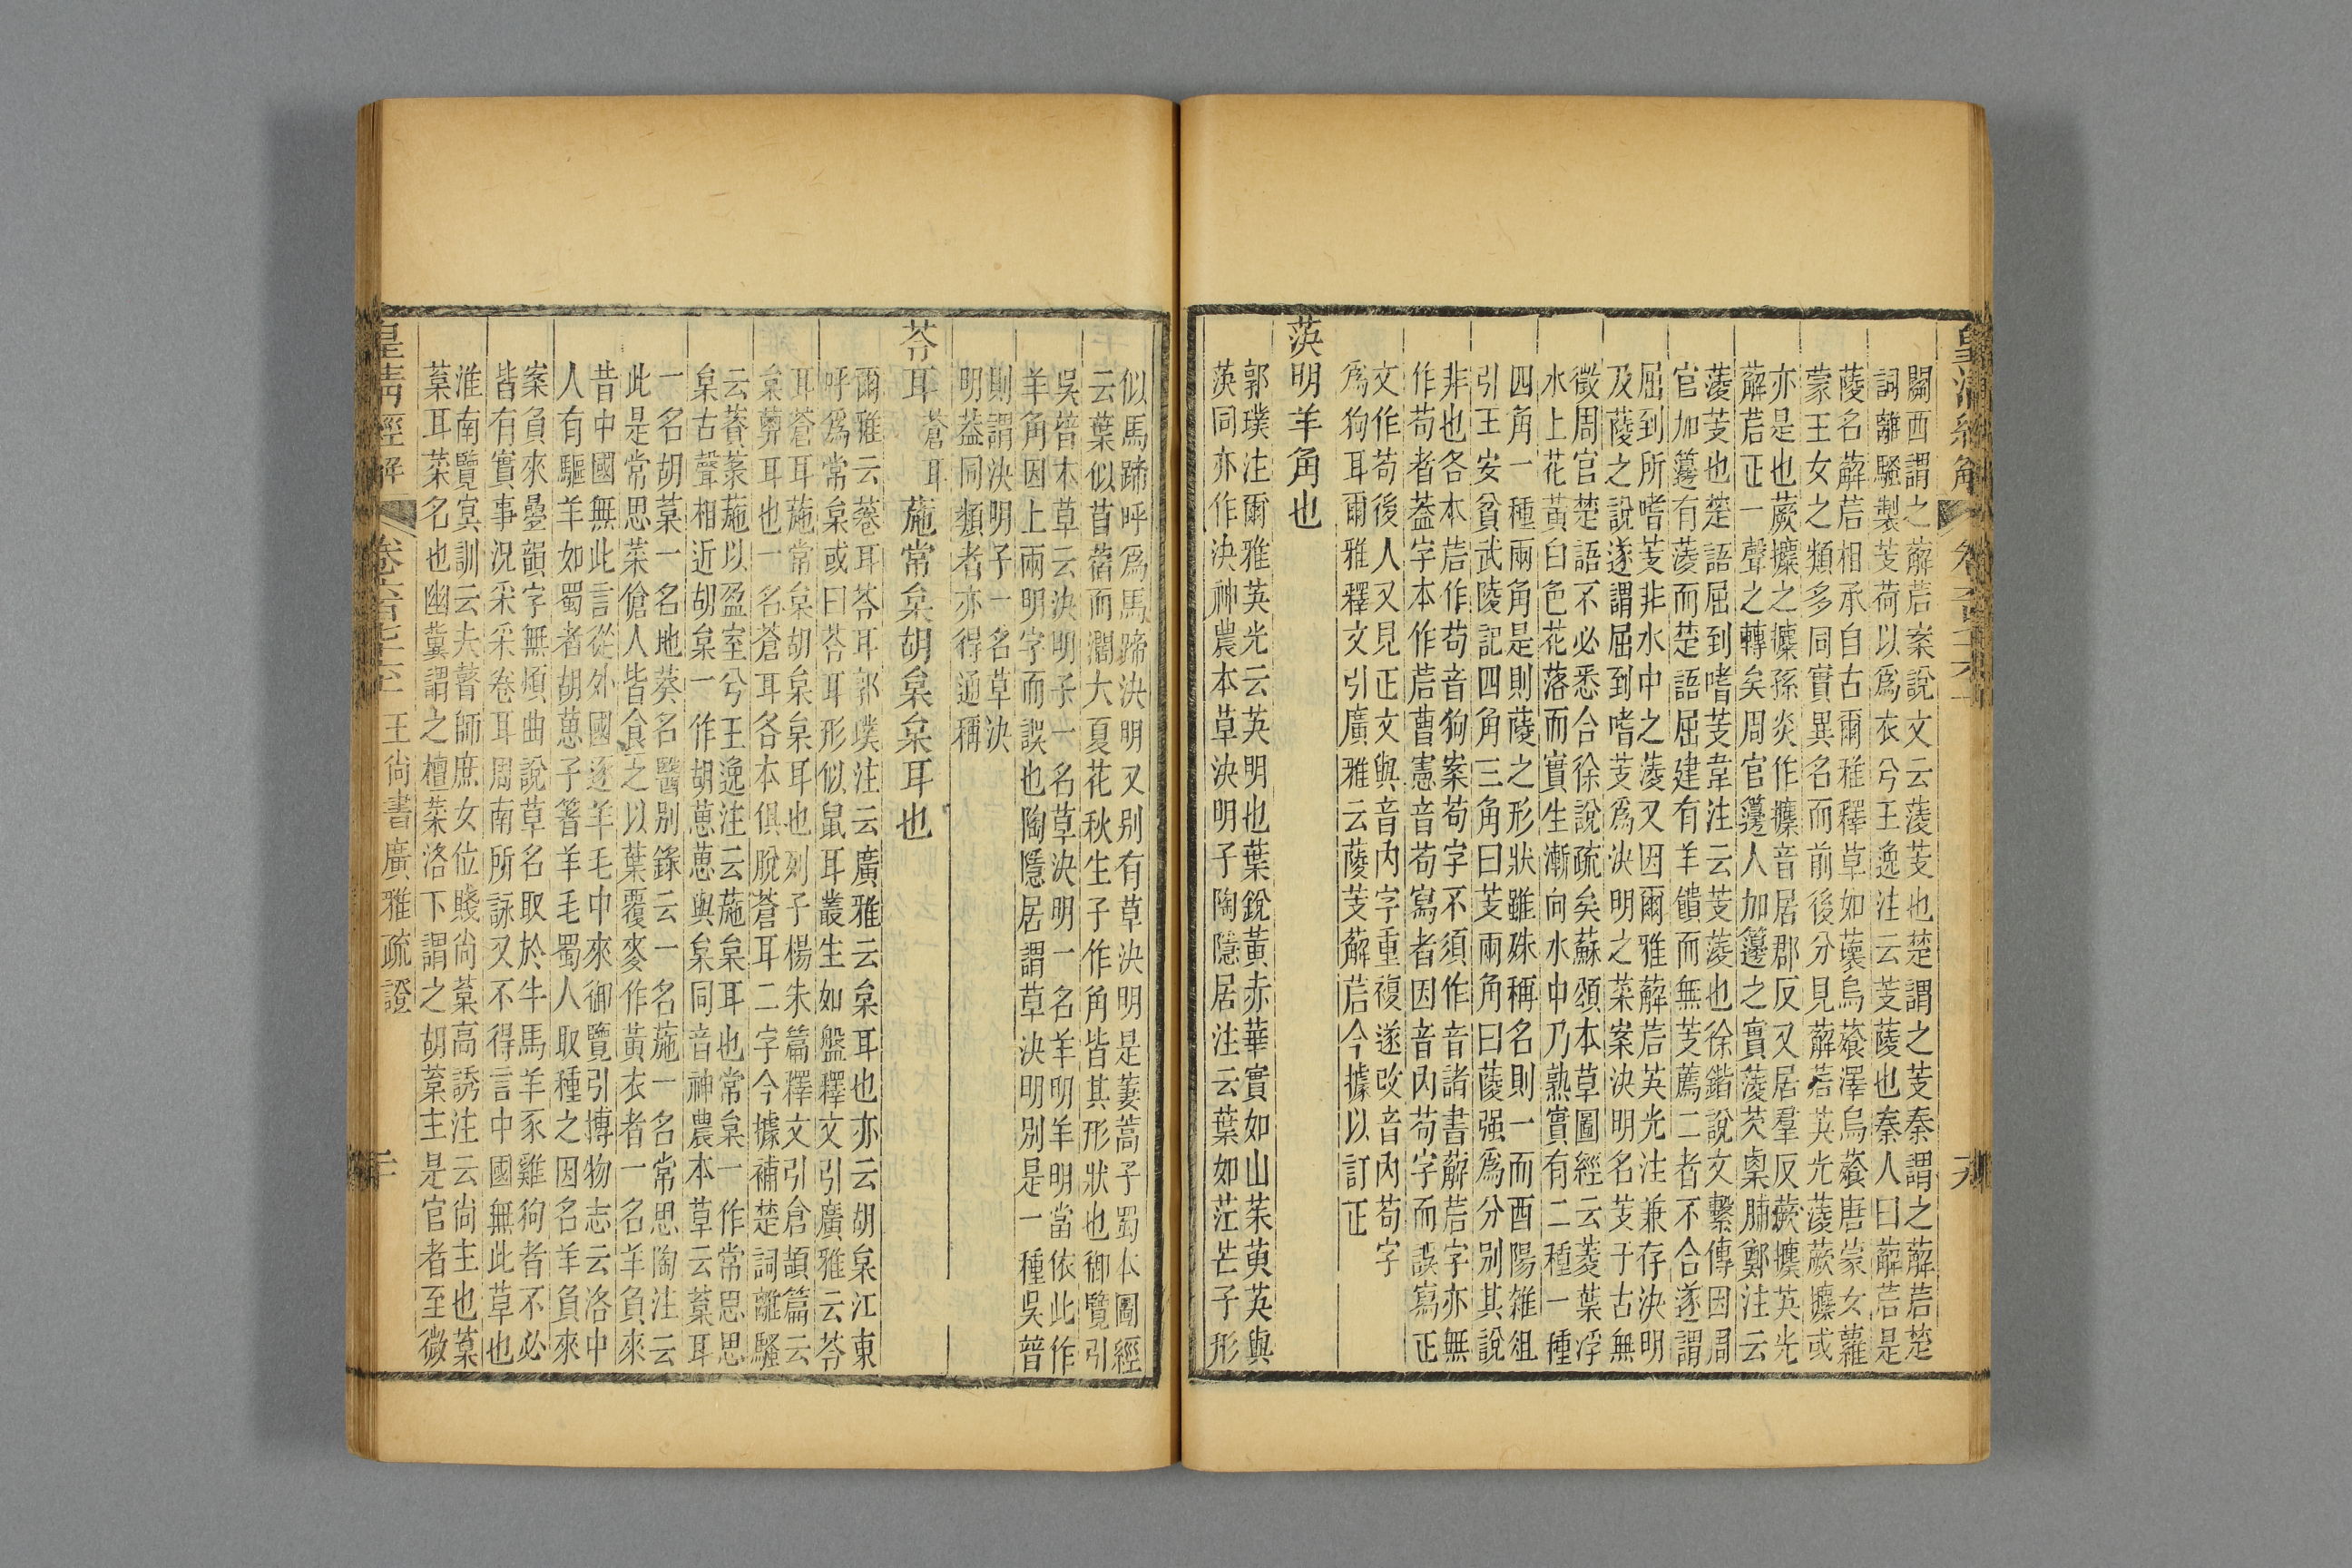 皇清經解 卷六百七十六下 九
關西謂之薢茩案說文云蔆芰也楚謂之芰秦謂之薢茩楚
詞離騷製芰荷以爲衣兮王逸注云芰蔆也秦人曰薢茩是
蔆名薢茩相承自古爾雅釋草如蘾烏蕵澤烏蕵唐蒙女蘿
蒙王女之類多同實異名而前後分見薢茩英光蔆蕨攗或
亦是也蕨攗之攗孫炎作攗音居郡反又居羣反蕨攗英光
薢茩正一聲之轉矣周官籩人加籩之實蔆芡㮚脯鄭注云
蔆芰也楚語屈到嗜芰韋注云芰蔆也徐鍇說文繫傳因周
官加籩有蔆而楚語屈建有羊饋而無芰薦二者不合遂謂
屈到所嗜芰非水中之蔆又因爾雅薢茩英光注兼存決明
及蔆之說遂謂屈到嗜芰爲決明之菜案決明名芰于古無
徵周官楚語不必悉合徐說疏矣蘇頌本草圖經云菱葉浮
水上花黃白色花落而實生漸向水中乃熟實有二種一種
四角一種兩角是則蔆之形狀雖殊稱名則一而酉陽雜俎
引王安貧武陵記四角三角曰芰兩角曰蔆强爲分別其說
非也各本茩作苟音狗案苟字不須作音諸書薢茩字亦無
作苟者葢字本作茩曹憲音苟寫者因音內苟字而誤寫正
文作苟後人又見正文與音內字重複遂攺音內苟字
爲狗耳爾雅釋文引廣雅云蔆芰薢茩今據以訂正
蓂明羊角也
郭璞注爾雅英光云英明也葉銳黃赤華實如山茱萸英與
蓂同亦作決神農本草決明子陶隱居注云葉如茳芒子形
似馬蹄呼爲馬蹄決明又别有草決明是萋蒿子蜀本圖經
云葉似苜蓿而濶大夏花秋生子作角皆其形狀也御覽引
吳普本草云決明子一名草決明一名羊明羊明當依此作
羊角因上兩明字而誤也陶隱居謂草決明別是一種吳普
則謂決明子一名草決
明葢同類者亦得通稱
苓耳 蒼耳 葹常枲胡枲枲耳也
爾雅云菤耳苓耳郭璞注云廣雅云枲耳也亦云胡枲江東
呼爲常枲或曰苓耳形似鼠耳叢生如盤釋文引廣雅云苓
耳蒼耳葹常枲胡枲枲耳也列子楊朱篇釋文引倉頡篇云
枲䔂耳也一名蒼耳各本俱脫蒼耳二字今據補楚詞離騷
云薋菉葹以盈室兮王逸注云葹枲耳也常枲一作常思思
枲古聲相近胡枲一作胡葸葸與枲同音神農本草云葈耳
一名胡葈一名地葵名醫別錄云一名葹一名常思陶注云
此是常思菜傖人皆食之以葉覆麥作黃衣者一名羊負來
昔中國無此言從外國逐羊毛中來御覽引博物志云洛中
人有驅羊如蜀者胡葸子箸羊毛蜀人取種之因名羊負來
案負來疊韻字無煩曲說草名取於牛馬羊豕雞狗者不必
皆有實事況采采卷耳周南所詠又不得言中國無此草也
淮南覽冥訓云夫瞽師庶女位賤尙葈高誘注云尙主也葈
葈耳菜名也幽冀謂之檀菜洛下謂之胡葈主是官者至微
皇清經解 卷六百七十六下 王尙書廣雅疏證 二十